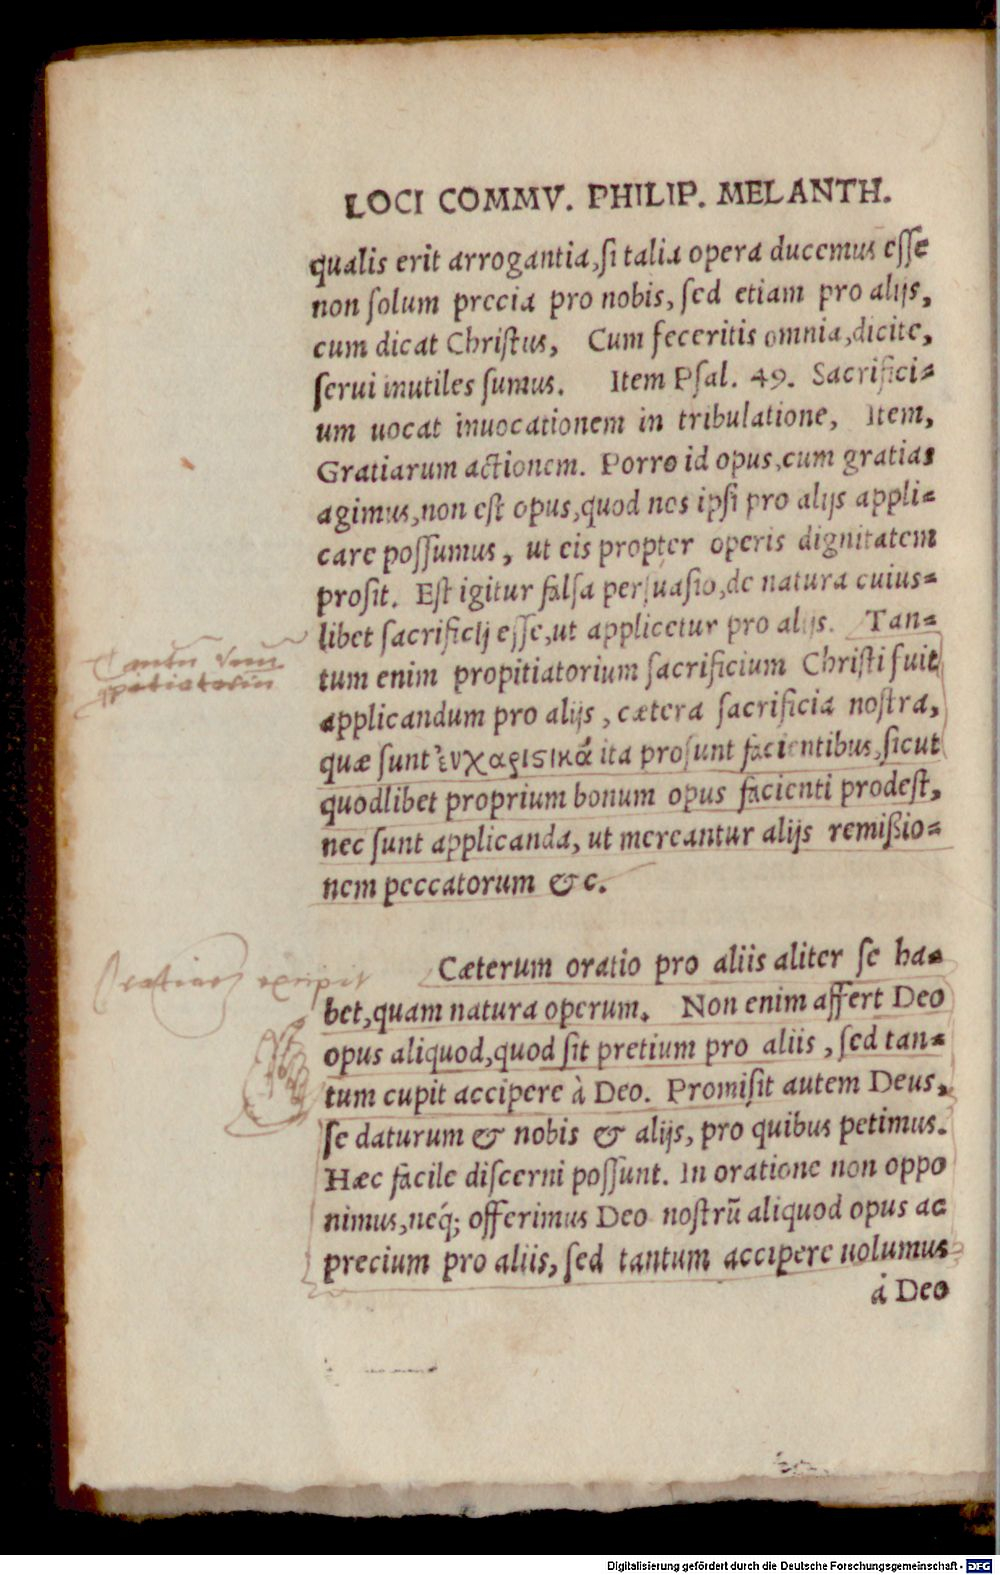 LOCI COMMV. PHILIP. MELANTH.
qualis erit arrogantia, ſi talia opera ducemus eſſe
non ſolum precia pro nobis, ſed etiam pro alijs,
cum dicat Chriſtus, Cum feceritis omnia, dicite,
ſerui inutiles ſumus. Item Pſal. 49. Sacrifici=
um uocat inuocationem in tribulatione, Item,
Gratiarum actionem. Porro id opus, cum gratias
agimus, non eſt opus, quod nos ipſi pro alijs appli=
care poſſumus, ut eis propter operis dignitatem
proſit. Eſt igitur falſa perſuaſio, de natura cuius=
libet ſacrificij eſſe, ut applicetur pro alijs. Tan=
tum enim propitiatorium ſacrificium Chriſti fuit
applicandum pro alijs, cætera ſacrificia noſtra,
quæ ſunt ἐυχαριϛικὰ ita proſunt facientibus, ſicut
quodlibet proprium bonum opus facienti prodeſt,
nec ſunt applicanda, ut mereantur alijs remißio=
nem peccatorum &c.
Cæterum oratio pro aliis aliter ſe ha=
bet, quam natura operum. Non enim affert Deo
opus aliquod, quod ſit pretium pro aliis, ſed tan=
tum cupit accipere à Deo. Promiſit autem Deus,
ſe daturum & nobis & alijs, pro quibus petimus.
Hæc facile diſcerni poſſunt. In oratione non oppo
nimus, neq́; offerimus Deo noſtrũ aliquod opus ac
precium pro aliis, ſed tantum accipere uolumus
à Deo
Digitalisierung gefördert durch die Deutsche Forschungsgemeinschaft - DFG